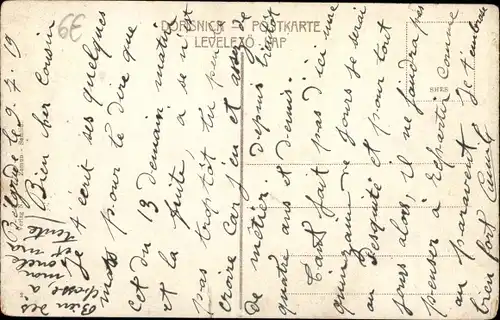 6E
DOPISNICA — POSTKARTE
LEVELEZŐ-LAP
Belgrade le 9.7.19
Bien cher cousin
Je t'écris ces quelques
mots pour te dire que
c'est du 13 demain matin
et la fuite a se vi
pas trop tôt tu peux
croire car j'en ai assez de
de métier depuis bientôt
quatre ans et demis.
Tant fait pas d'ici une
quinzaine de jours je serai
au et pour tout
jours alors, il ne faudra pas
penser à repartir comme
au paravent. Je t'embrasse
bien fort Camille
Bien des
choses, a
mon oncle
et ma
tante